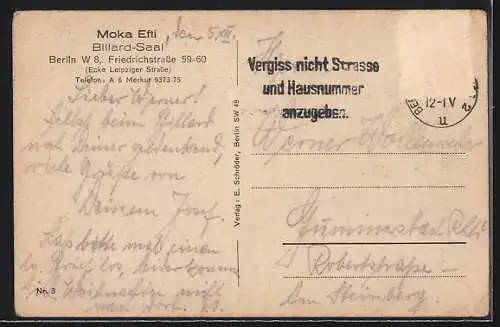 Moka Efti
Billard-Saal
Berlin W 8, Friedrichstraße 59-60
(Ecke Leipziger Straße)
Telefon: A 6 Merkur 9373-75
den 5/XII.
Lieber Werner!
Selbst beim Billard
noch Deiner gedenkend,
viele Grüße von
Deinem Josef.
Lass bitte mal einen
Brief los, leider komme
Weihnachten nicht
nach dort.
Nr. 3
Verlag: E. Schröder, Berlin SW 48
Vergiss nicht Strasse
und Hausnummer
anzugeben.
12-1 V
u
Herrn
Werner
Gummersbach Rhld
Robertstraße
Am